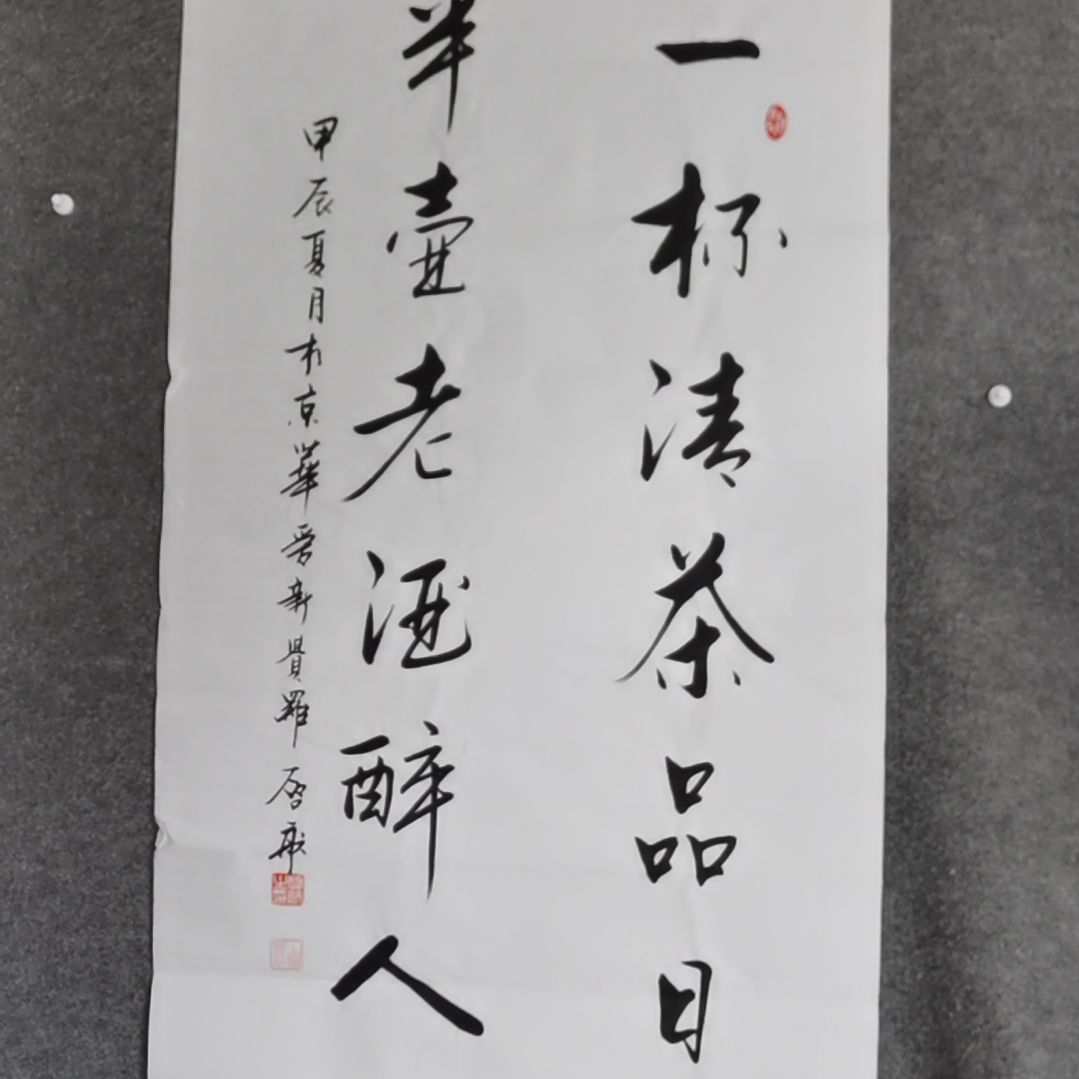 一杯清茶品日
半壶老酒醉人
甲辰夏月於京華晋新貴羅啓